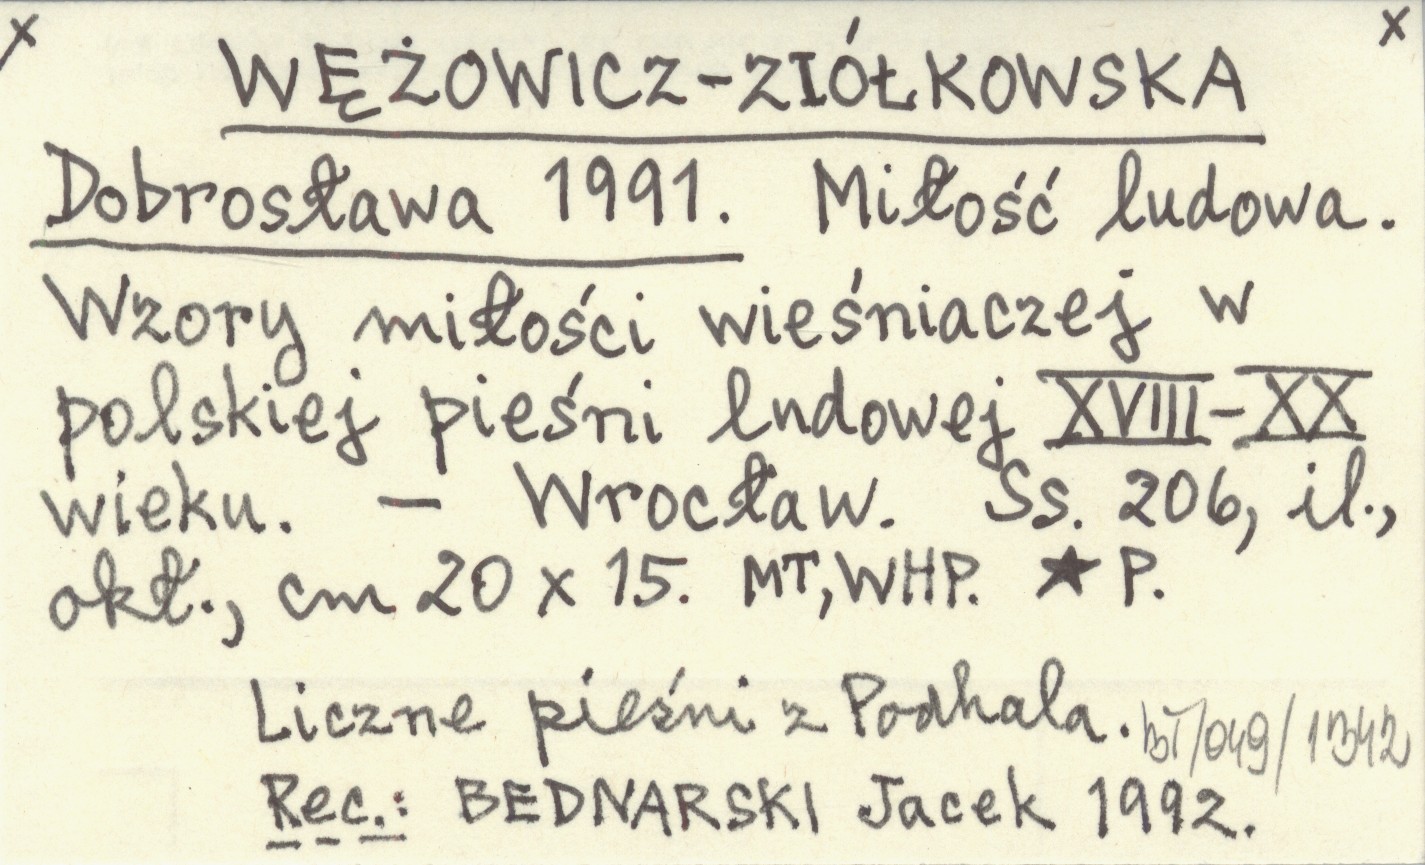 x x
WĘŻOWICZ-ZIÓŁKOWSKA
Dobrosława 1991. Miłość ludowa.
Wzory miłości wieśniaczej w
polskiej pieśni ludowej XVIII-XX
wieku. — Wrocław. Ss. 206, il.,
okł., cm 20 x 15. MT, WHP. ★ P.
Liczne pieśni z Podhala.
Rec.: BEDNARSKI Jacek 1992.